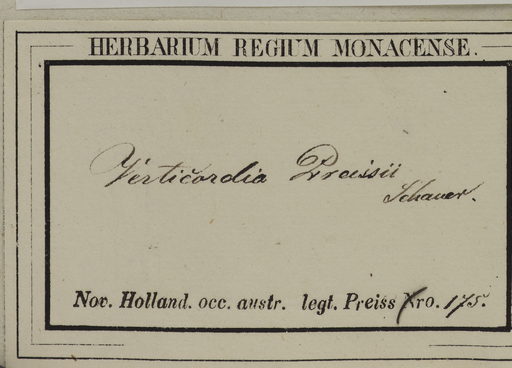 HERBARIUM REGIUM MONACENSE.
Verticordia Preissii
Schauer.
Nov. Holland. occ. austr. legt. Preiss Nro. 175.